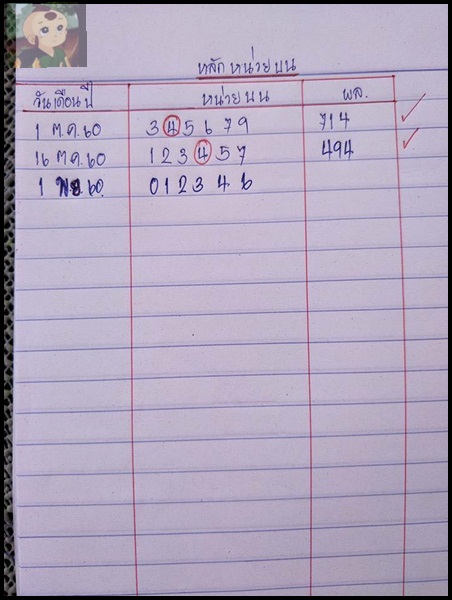 หลักหน่วยบน
วันเดือนปี หน่วยบน ผล.
1 ต.ค.60 3 4 5 6 7 9 714
16 ต.ค.60 1 2 3 4 5 7 494
1 พ.ย.60. 0 1 2 3 4 6